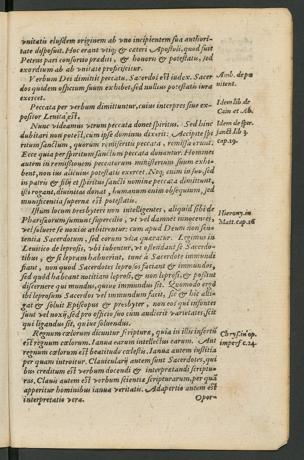 vnitatis eiusdem originem ab vno incipientem sua authori-
tate disposuit. Hoc erant vtiq; & ceteri Apostoli, quod fuit
Petrus pari consortio prediti, & honoris & potestatis, sed
exordium ab ab vnitate proficiscitur.
Verbum Dei dimittit peccata. Sacerdos est iudex. Sacer-
dos quidem officium suum exhibet, sed nullius potestatis iura
exercet.
Amb. de pœ
nitent.
Peccata per verbum dimittuntur, cuius interpres siue ex-
positor Leuita est.
Idem lib. de
Cain et Ab.
Nunc videamus vtrum peccata donet spiritus. Sed hinc
dubitari non potest, cum ipse dominus dixerit: Accipite spi
ritum sanctum, quorum remiseritis peccata, remissa erunt.
Ecce quia per spiritum sanctum peccata donantur. Homines
autem in remissionem peccatorum ministerium suum exhi-
bent, non ius alicuius potestatis exercet. Neq; enim in suo, sed
in patris & filij et spiritus sancti nomine peccata dimittunt,
isti rogant, diuinitas donat, humanum enim obsequium, sed
munificentia superna est potestatis.
Idem de sper.
sanct. lib 3
cap. 19.
Istum locum presbyteri non intelligentes, aliquid sibi de
Pharisæorum sumunt supercilio, vt vel damnent innocentes,
vel soluere se noxios arbitrentur: cum apud Deum non sen-
tentia Sacerdotum, sed eorum vita quæratur. Legimus in
Leuitico de leprosis, vbi iubentur, vt ostendant se Sacerdo-
tibus, & si lepram habuerint, tunc à Sacerdote immundi
fiant, non quod Sacerdotes leprosos faciant & immundos,
sed quòd habeant notitiam leprosi, & non leprosi, & possint
discernere qui mundus, quiue immundus sit. Quomodo ergò
ibi leprosum Sacerdos vel immundum facit, sic & hic alli-
gat & soluit Episcopus & presbyter, non eos qui insontes
sunt vel noxij, sed pro officio suo cum audierit varietates, scit
qui ligandus sit, quiue soluendus.
Hierony. in
Matt. cap. 16
Regnum cœlorum dicuntur scripturæ, quia in illis insertũ
est regnum cœlorum. Ianua earum intellectus earum. Aut
regnum cœlorum est beatitudo cœlestis. Ianua autem iustitia
per quam intratur. Clauicularij autem sunt Sacerdotes, qui-
bus creditum est verbum docendi & interpretandi scriptu-
ras. Clauis autem est verbum scientiæ scripturarum, per quã
apperitur hominibus ianua veritatis. Adapertio autem est
interpretatio vera.
Chrys. in op.
imperf. c. 24.
Opor-